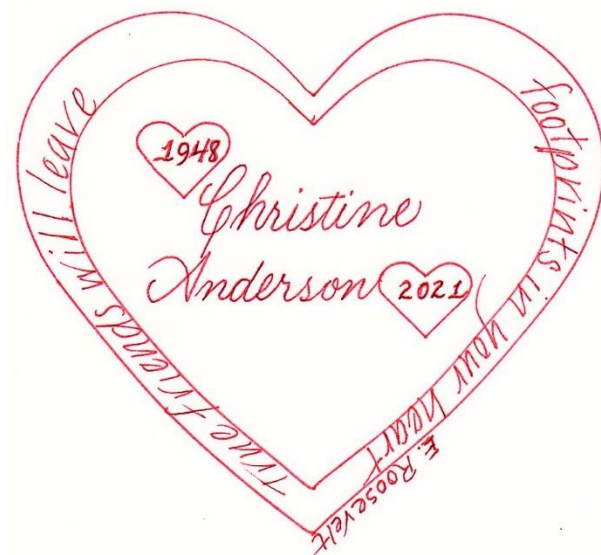 True friends will leave
footprints in your heart
E. Roosevelt
1948
Christine
Anderson 2021